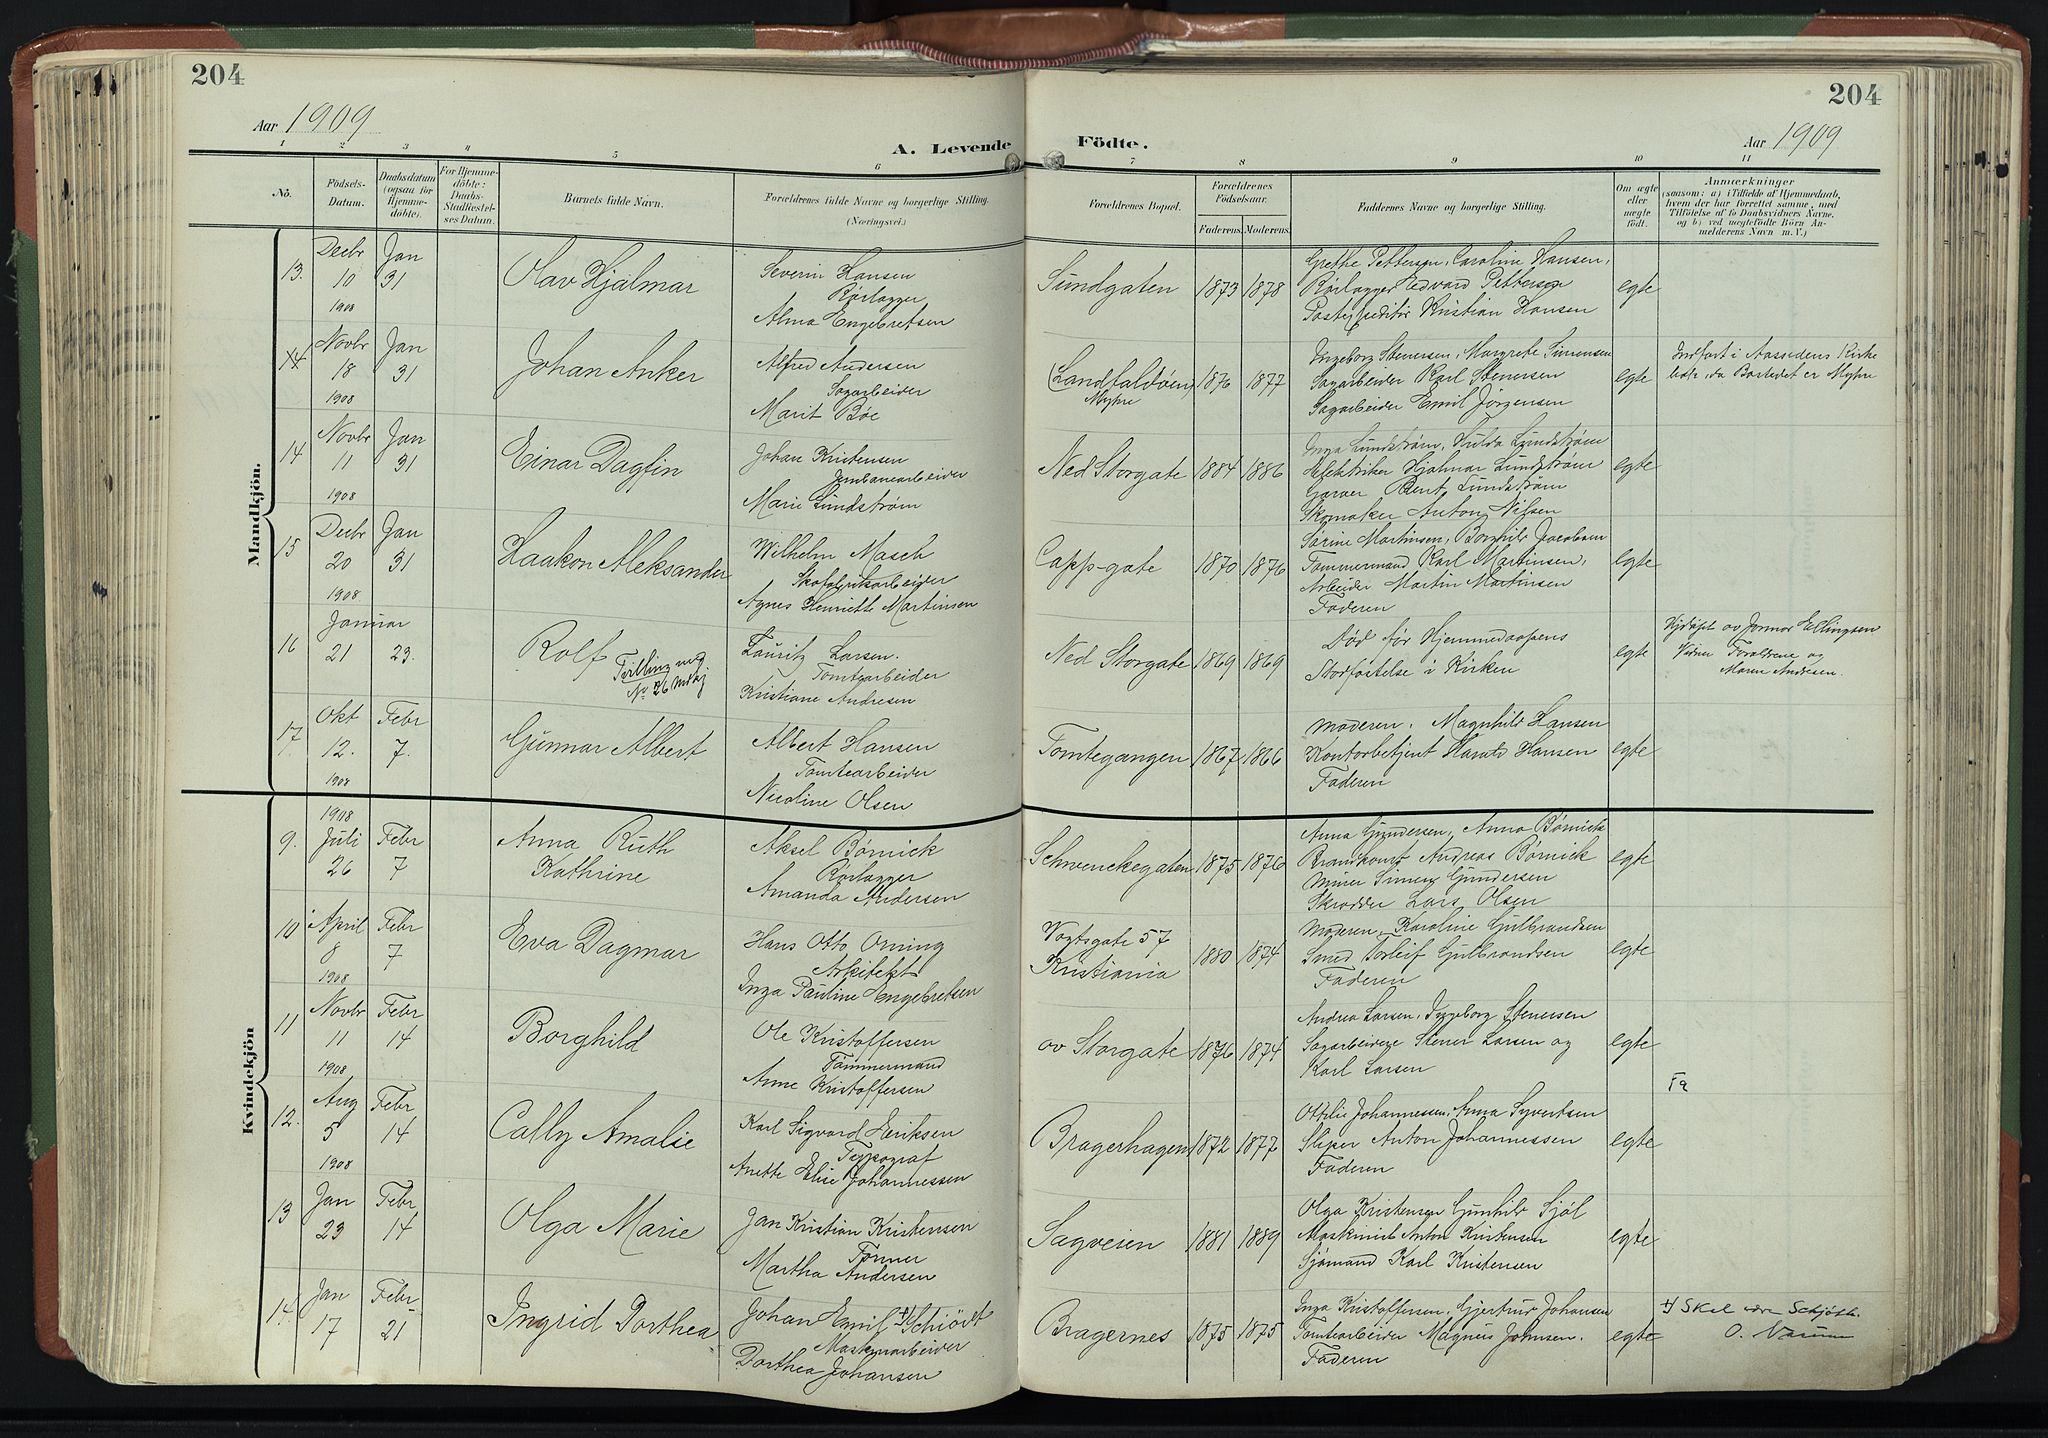 204
204
Aar 1909
A. Levende
Födte.
Aar 1909
1 2 3 4 5 6 7 8 9 10 11
Nò.
Födsels-
Datum.
Daabsdatum
(ogsaa for
Hjemme-
döbte).
For Hjemme-
döbte:
Daabs-
Stadfæstel-
ses Datum.
Barnets fulde Navn.
Forældrenes fulde Navne og borgerlige Stilling.
(Næringsvei.)
Forældrenes Bopæl.
Forældrenes
Födselsaar.
Faderens. Moderens.
Faddernes Navne og borgerlige Stilling.
Om ægte
eller
uægte
födt.
Anmærkninger
(saasom: a) i Tilfælde af Hjemmedaab,
hvem der har forrettet samme, med
Tilföielse af to Daabsvidners Navne.
og b) ved uægtefödte Börn An-
melderens Navn m. V.)
Mandkjön.
13. Decbr 10 1908
Jan 31
Olav Hjalmar
Severin Hansen
Rørlægger
Alma Engebretsen
Sundgaten
1873 1878
Grethe Pettersen, Caroline Hansen,
Rørlægger Edvard Pettersen
Postexpeditør Kristian Hansen
egte
14 Novbr 18 1908
Jan 31
Johan Anker
Alfred Andersen
Sagarbeider
Marit Bøe
(Landfaldøen)
Myhre
1876 1877
Ingeborg Stenersen, Margrete Simensen
Sagarbeider Karl Stenersen
Sagarbeider Emil Jørgensen
egte
Indført i Aassidens Kirke
bok, da Bostedet er Myhre
14 Novbr 11 1908
Jan 31
Einar Dagfin
Johan Kristensen
Jernbanearbeider
Marie Lundstrøm
Ned Storgate
1884 1886
Inga Lundstrøm, Hulda Lundstrøm
Elektriker Hjalmar Lundstrøm
Garver Bent Lundstrøm
Skomaker Anton Nilsen
egte
15 Decbr 20 1908
Jan 31
Haakon Aleksander
Wilhelm Masch
Skofabrikarbeider
Agnes Henriette Martinsen
Cappgate
1870 1876
Sarine Martinsen, Borghild Jacobsen
Tømmermand Karl Martinsen,
Arbeider Martin Martinsen
Faderen
egte
16 Januar 21
23
Rolf
Tvilling med
No 26 m
Lauritz Larsen.
Tomtearbeider
Kristiane Andresen
Ned Storgate
1869 1869
Død før Hjemmedaapens
Stadfæstelse i Kirken
egte
Hjdøpt av Jormor Ellingsen
Vidner Forældrene og
Maren Andresen.
17 Okt 12. 1908
Febr 7.
Gunnar Albert
Albert Hansen
Tomtearbeider
Nicoline Olsen
Tomtegangen
1867 1866
Moderen, Magnhild Hansen
Kontorbetjent Harald Hansen
Faderen
egte
Kvindekjön
9. 1908 Juli 26
Febr 7
Anna Ruth
Kathrine
Aksel Børnick
Rørlægger
Amanda Andersen
Schwenckegaten
1875 1876
Anna Gundersen, Anna Børnick
Brandkonst Andreas Børnick
Murer Simen Gundersen
Skrædder Lars Olsen
egte
10 April 8 1908
Febr 7
Eva Dagmar
Hans Otto Orning
Arkitekt
Inga Pauline Engebretsen
Vogtsgate 57
Kristiania
1880 1874
Moderen, Karoline Gulbrandsen
Smed Torleif Gulbrandsen
Faderen
egte
11 Novbr 11 1908
Febr 14
Borghild
Ole Kristoffersen
Tømmermand
Anne Kristoffersen
ov Storgate
1876 1874
Andrea Larsen, Ingeborg Stenersen
Sagarbeidere Stener Larsen og
Karl Larsen
egte
12. Aug 5 1908
Febr 14
Cally Amalie
Karl Sigvard Eriksen
Typograf
Anette Elise Johannessen
Bragerhagen
1872 1877
Ottilie Johannessen, Anna Syvertsen
Sliper Anton Johannessen
Faderen
egte
13 Jan 23
Febr 14
Olga Marie
Jan Kristian Kristensen
Tønner
Martha Andersen
Sagveien
1881 1889
Olga Kristensen Gunhild Sjøl
Maskinist Anton Kristensen
Sjømand Karl Kristensen
egte
14. Jan 17
Febr 21
Ingrid Dorthea
Johan Emil Schiödt
Maskinarbeider
Dorthea Johansen
Bragernes
1875 1875
Inga Kristoffersen, Gjertrud Johansen
Tomtearbeider Magnus Johnsen.
Faderen
egte
Skal være
O.